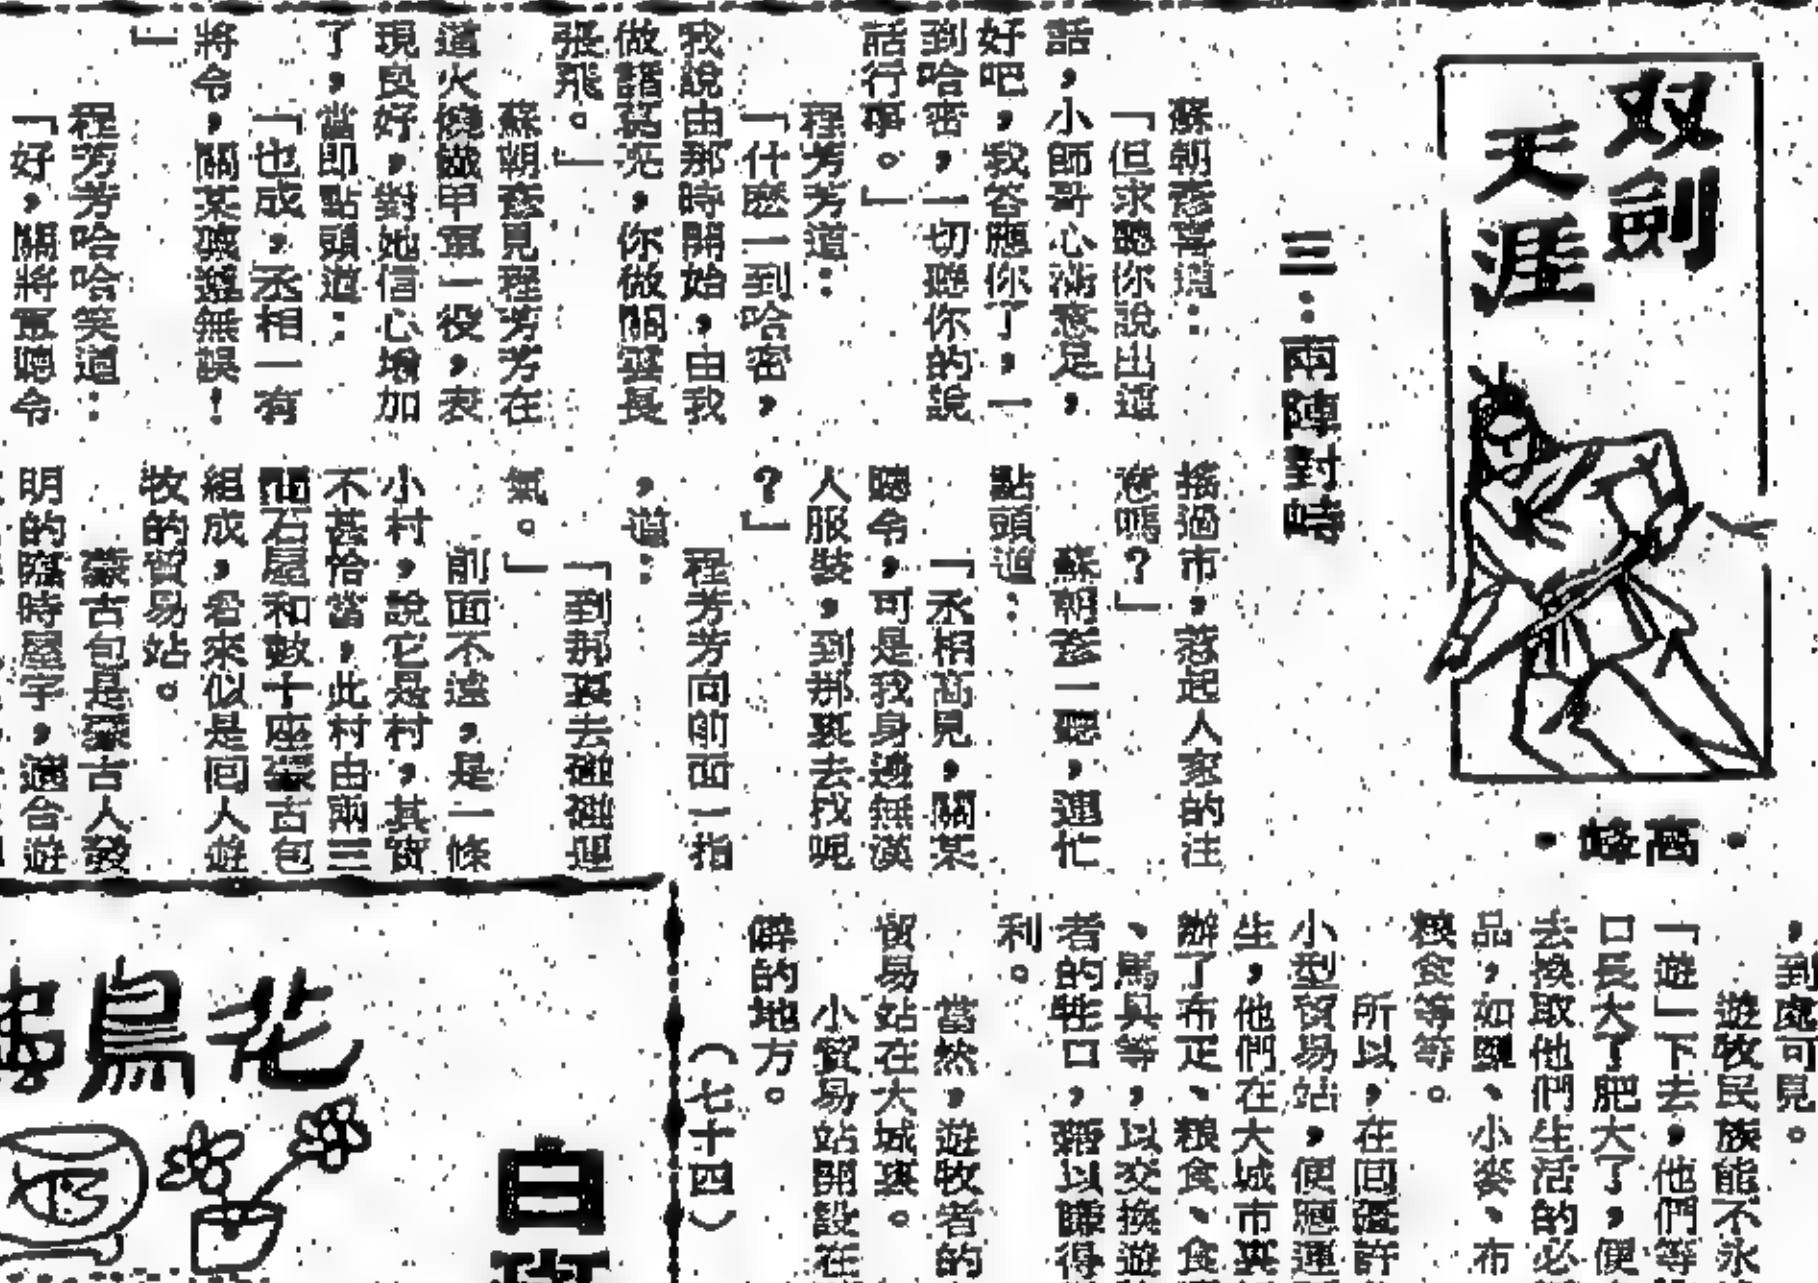 双劍
天涯
·高峰·
三：兩陣對峙
蘇朝彥喜道：
「但求聽你說出這
話，小師哥心滿意足，
好吧，我答應你了，一
到哈密，一切聽你的說
話行事。」
程芳芳道：
「什麼一到哈密，
我說由那時開始，由我
做諸葛亮，你做關雲長
張飛。」
蘇朝彥見程芳芳在
這火燒鐵甲軍一役，表
現良好，對她信心增加
了，當即點頭道：
「也成，丞相一有
將令，關某遵無誤！
」
程芳芳哈哈笑道：
「好，關將軍聽令
搖過市，惹起人家的注
意嗎？」
蘇朝彥一聽，連忙
點頭道：
「丞相高見，關某
聽令，可是我身邊無漢
人服裝，到那裏去找呢
？」
程芳芳向前面一指
，道：
「到那裏去碰碰運
氣。」
前面不遠，是一條
小村，說它是村，其實
不甚恰當，此村由兩三
間石屋和數十座蒙古包
組成，看來似是回人遊
牧的貿易站。
蒙古包是蒙古人發
明的臨時屋宇，適合遊
，到處可見。
遊牧民族能不永
「遊」下去，他們等
口長大了肥大了，便
去換取他們生活的必
品，如鹽、小麥、布
粮食等等。
所以，在回疆許
小型貿易站，便應運
生，他們在大城市裏
辦了布疋、粮食、食
、馬具等，以交換遊
者的牲口，藉以賺得
利。
當然，遊牧者的
貿易站在大城裏。
小貿易站開設在
僻的地方。
（七十四）
花鳥
白